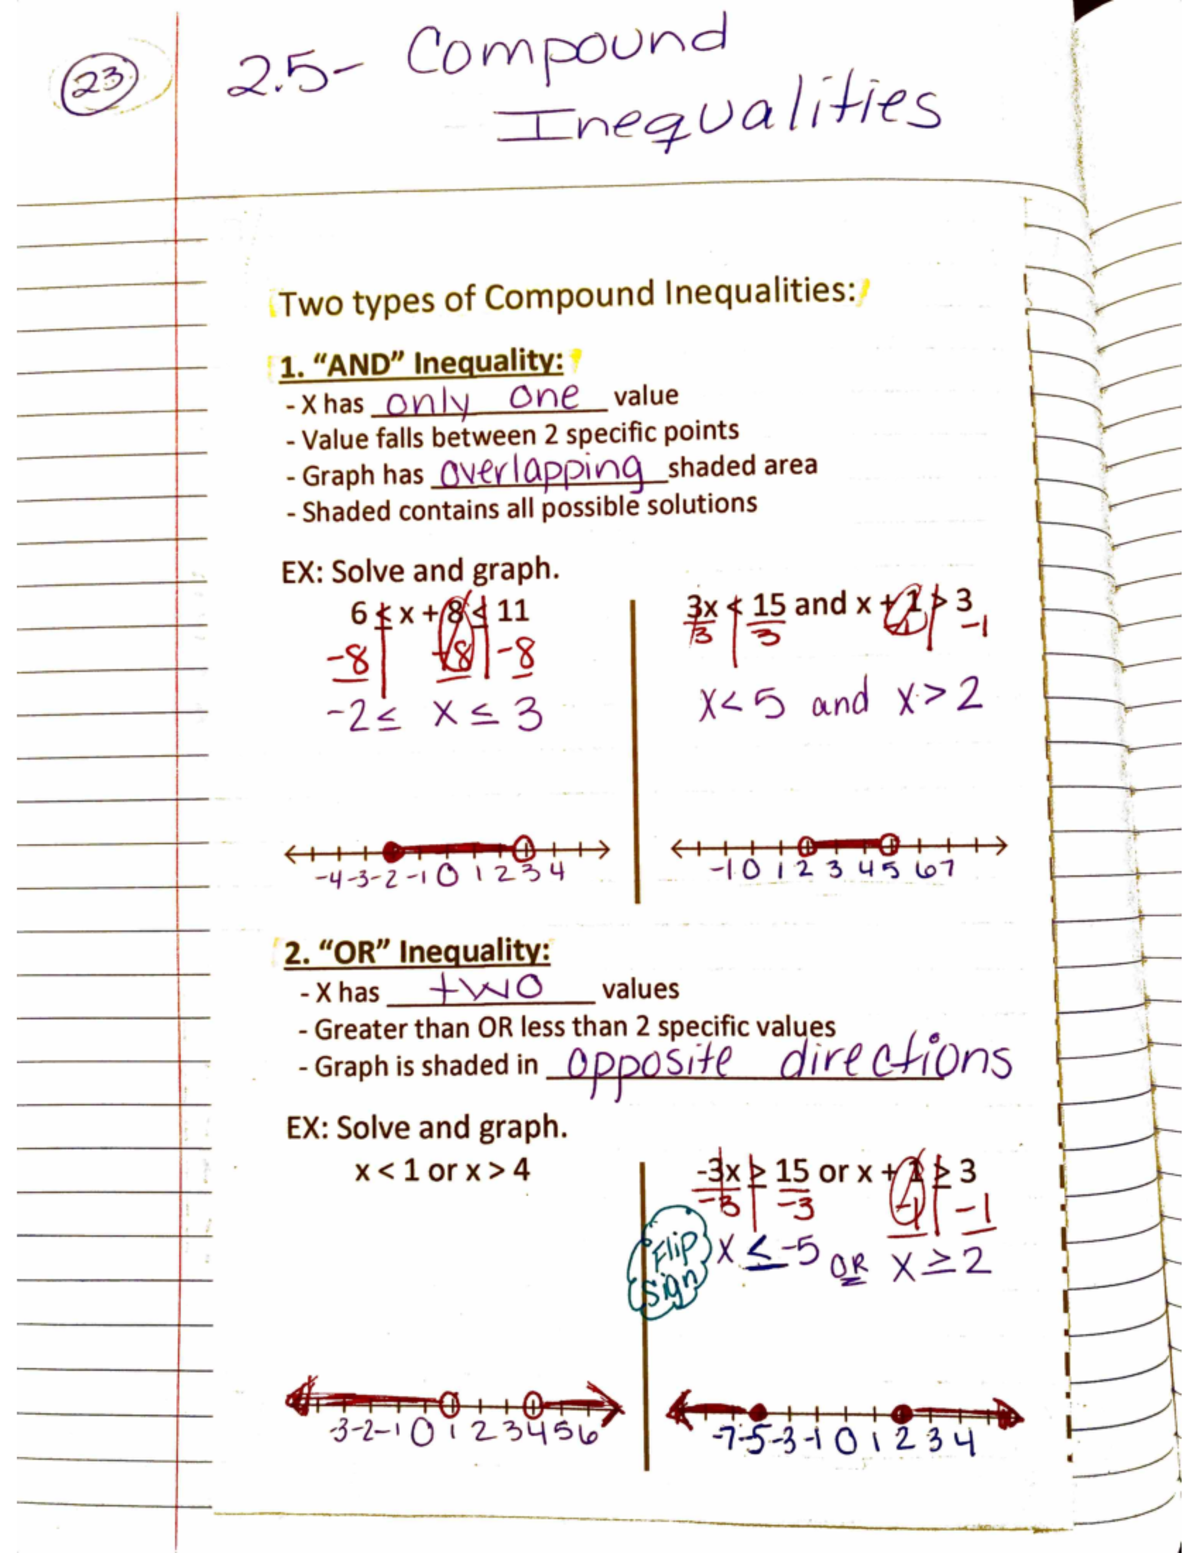 23
2.5- Compound
Inequalities
Two types of Compound Inequalities:
1. “AND” Inequality:
- X has only one value
- Value falls between 2 specific points
- Graph has overlapping shaded area
- Shaded contains all possible solutions
EX: Solve and graph.
6 ≤ x + 8 ≤ 11
-8 -8 -8
-2 ≤ x ≤ 3
3x < 15 and x + 1 > 3
3 3 -1 -1
x < 5 and x > 2
-4 -3 -2 -1 0 1 2 3 4
-1 0 1 2 3 4 5 6 7
2. “OR” Inequality:
- X has two values
- Greater than OR less than 2 specific values
- Graph is shaded in opposite directions
EX: Solve and graph.
x < 1 or x > 4
-3x ≥ 15 or x + 1 ≥ 3
-3 -3 -1 -1
Flip
sign
x ≤ -5 OR x ≥ 2
-3 -2 -1 0 1 2 3 4 5 6
-7 -5 -3 -1 0 1 2 3 4